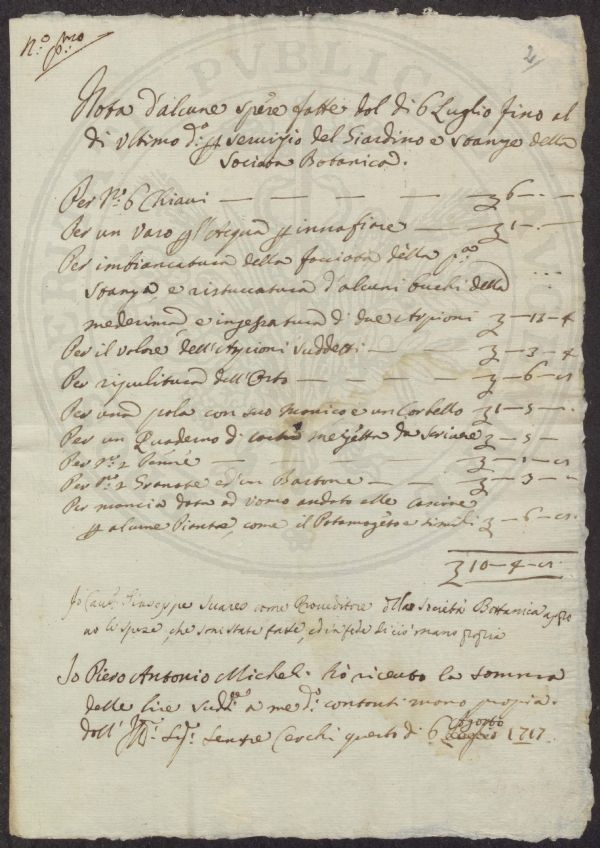 N.º p.mo
2
Nota d'alcune spese fatte dal di 6 Luglio fino al
di ultimo d.º p servizio del Giardino e stanze della
Società Botanica.
Per N.º 6 Chiavi — — — — — — 6 — . —
Per un vaso p l'acqua p innafiare — — 1 — . —
Per imbiancatura della facciata della p.ª
stanza, e ristuccatura d'alcuni buchi della
medesima, e ingessatura di due Arpioni — 13 — 4
Per il valore dell'Arpioni suddetti — — 3 — 4
Per ripulitura dell'Orto — — — — 6 — 8
Per una pala con suo manico e un Corbello 1 — 5 — .
Per un Quaderno di carta mezzetta da scrivere — 5 —
Per n.º 2 Penne — — — — — 1 — 8
Per n.º 2 Granate ed un Bastone — — — 3 —
Per mancia data ad uomo andato alle cascine
p alcune Piante, come il Potamogeto e simili — 6 — 8
10 — 4 — 8
Io Cav. Giuseppe Suares come Proveditore della Società Bottanica approvo
le spese, che sono state fatte, ed in fede di ciò mano propria
Io Piero Antonio Micheli hò ricevuto la somma
delle lire sudd.e a me d.º contanti mano propria
dall' Ill. Sig. Senre Cerchi questo di 6 Agosto 1717.